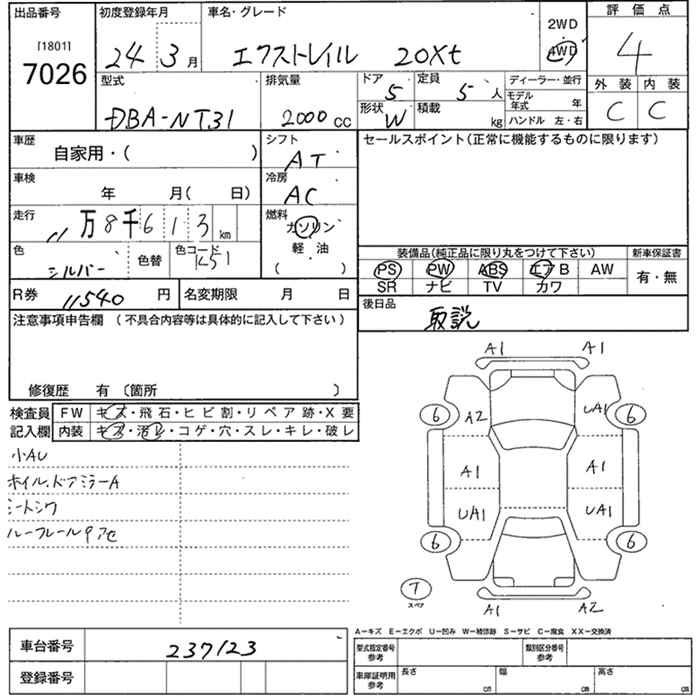 出品番号 初度登録年月 車名・グレード 2WD 評価点
[1801] 7026 24 3月 エクストレイル 20Xt 4WD 4
型式 排気量 ドア 5 定員 5人 ディーラー・並行 外装 内装
DBA-NT31 2000cc 形状 W 積載 kg モデル年式 年 C C
ハンドル 左・右
車歴 シフト セールスポイント(正常に機能するものに限ります)
自家用・( ) AT
車検 冷房
年 月( 日) AC
走行 燃料
11万8千613km ガソリン
軽・油
( ・ )
色 色替 色コード 装備品(純正品に限り丸をつけて下さい) 新車保証書
シルバー K51 PS PW ABS エアB AW 有・無
SR ナビ TV カワ
R券 11540円 名変期限 月 日 後日品
取説
注意事項申告欄 (不具合内容等は具体的に記入して下さい)
修復歴 有 〔箇所 〕
検査員 FW キズ・飛石・ヒビ割・リペア跡・X要
記入欄 内装 キズ・汚レ・コゲ・穴・スレ・キレ・破レ
小AU
ホイル、ドアミラーA
シートシワ
ルーフレール
A1 A1
6 A2 UA1 6
A1 A1
UA1 UA1
6 6
T
スペア
A1 A2
A-キズ E-エクボ U-凹み W-補修跡 S-サビ C-腐食 XX-交換済
車台番号 237123 型式指定番号 参考 類別区分番号 参考
登録番号 車庫証明用 参考 長さ cm 幅 cm 高さ cm